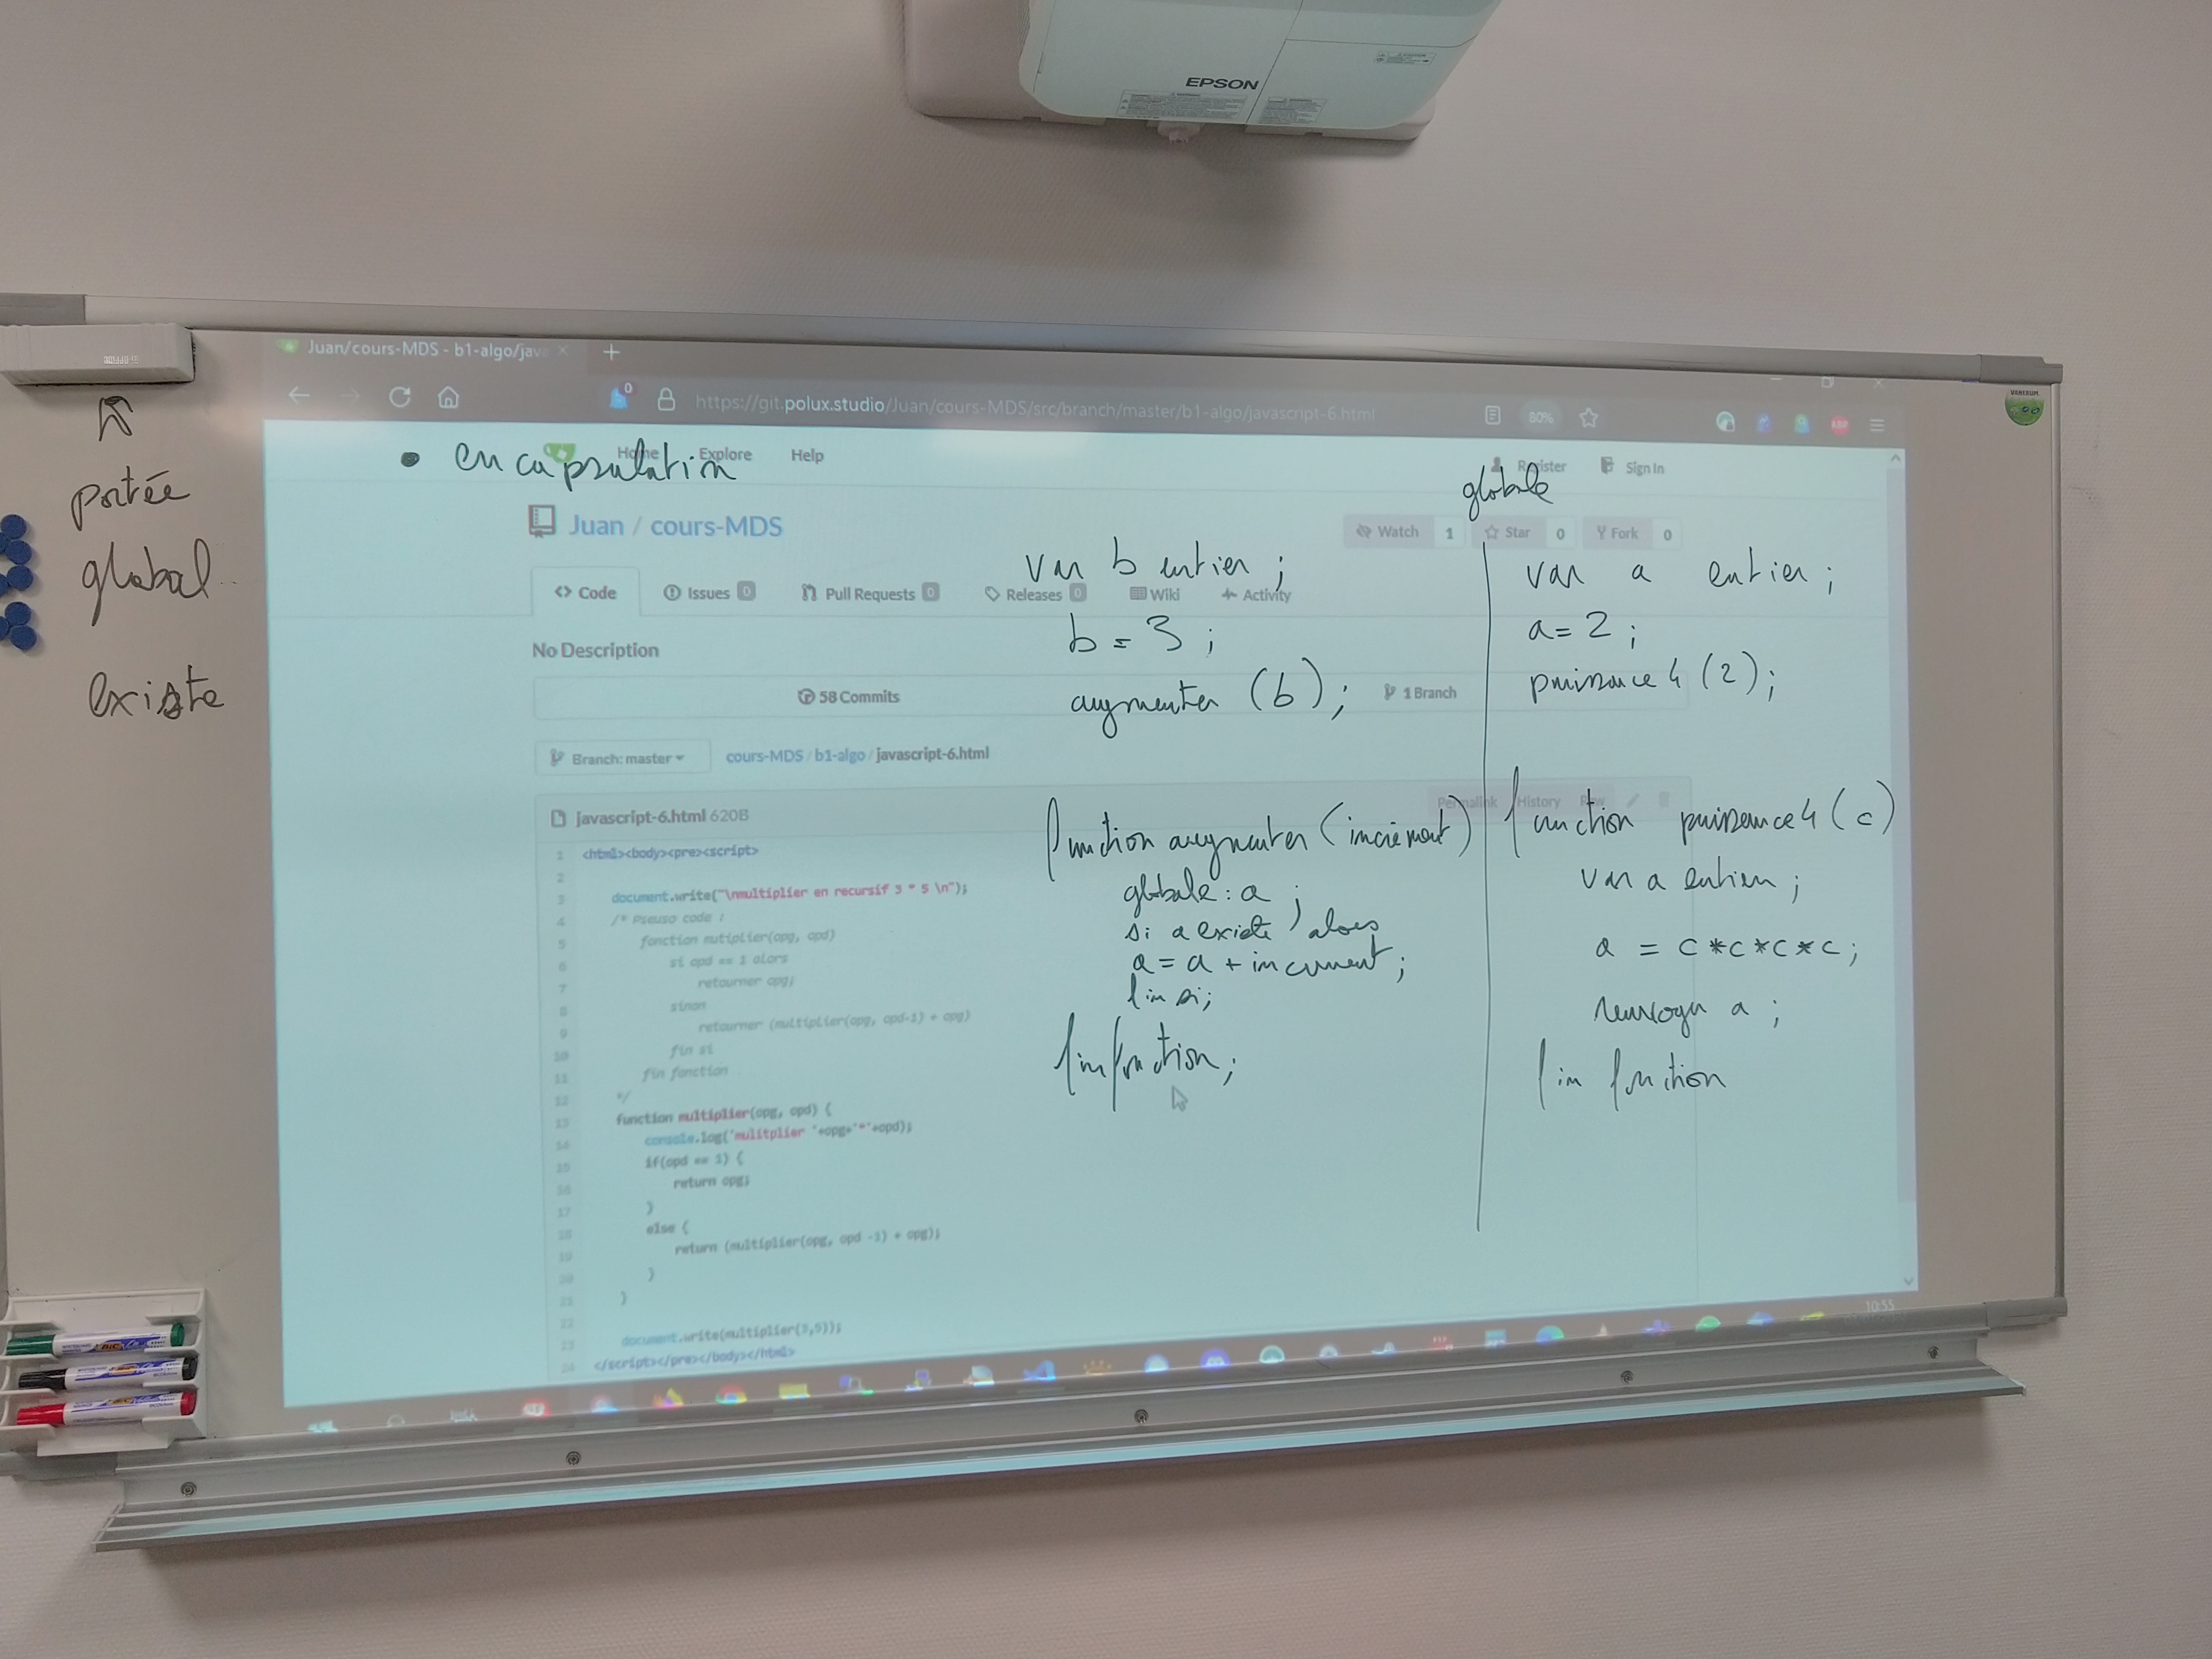 EPSON
Juan/cours-MDS - b1-algo/jav
https://git.polux.studio/Juan/cours-MDS/src/branch/master/b1-algo/javascript-6.html
80%
portée
global
existe
• encapsulation
Home Explore Help
Register Sign In
globale
Juan / cours-MDS
Watch 1 Star 0 Fork 0
Code Issues 0 Pull Requests 0 Releases 0 Wiki Activity
No Description
58 Commits 1 Branch
Branch: master cours-MDS / b1-algo / javascript-6.html
javascript-6.html 620B
Permalink History Raw
1 <html><body><pre><script>
2
3 document.write("\nmultiplier en recursif 3 * 5 \n");
4 /* Pseuso code :
5 fonction mutiplier(opg, opd)
6 si opd == 1 alors
7 retourner opg;
8 sinon
9 retourner (multiplier(opg, opd-1) + opg)
10 fin si
11 fin fonction
12 */
13 function multiplier(opg, opd) {
14 console.log('mulitplier '+opg+'*'+opd);
15 if(opd == 1) {
16 return opg;
17 }
18 else {
19 return (multiplier(opg, opd -1) + opg);
20 }
21 }
22
23 document.write(multiplier(3,5));
24 </script></pre></body></html>
var b entier ;
b = 3 ;
augmenter (b) ;
function augmenter (incrément)
globale : a ;
si a existe alors
a = a + increment ;
fin si ;
fin function ;
var a entier ;
a = 2 ;
puissance 4 (2) ;
function puissance 4 (c)
var a entier ;
a = c * c * c * c ;
a ;
fin function
10:55
VANERUM